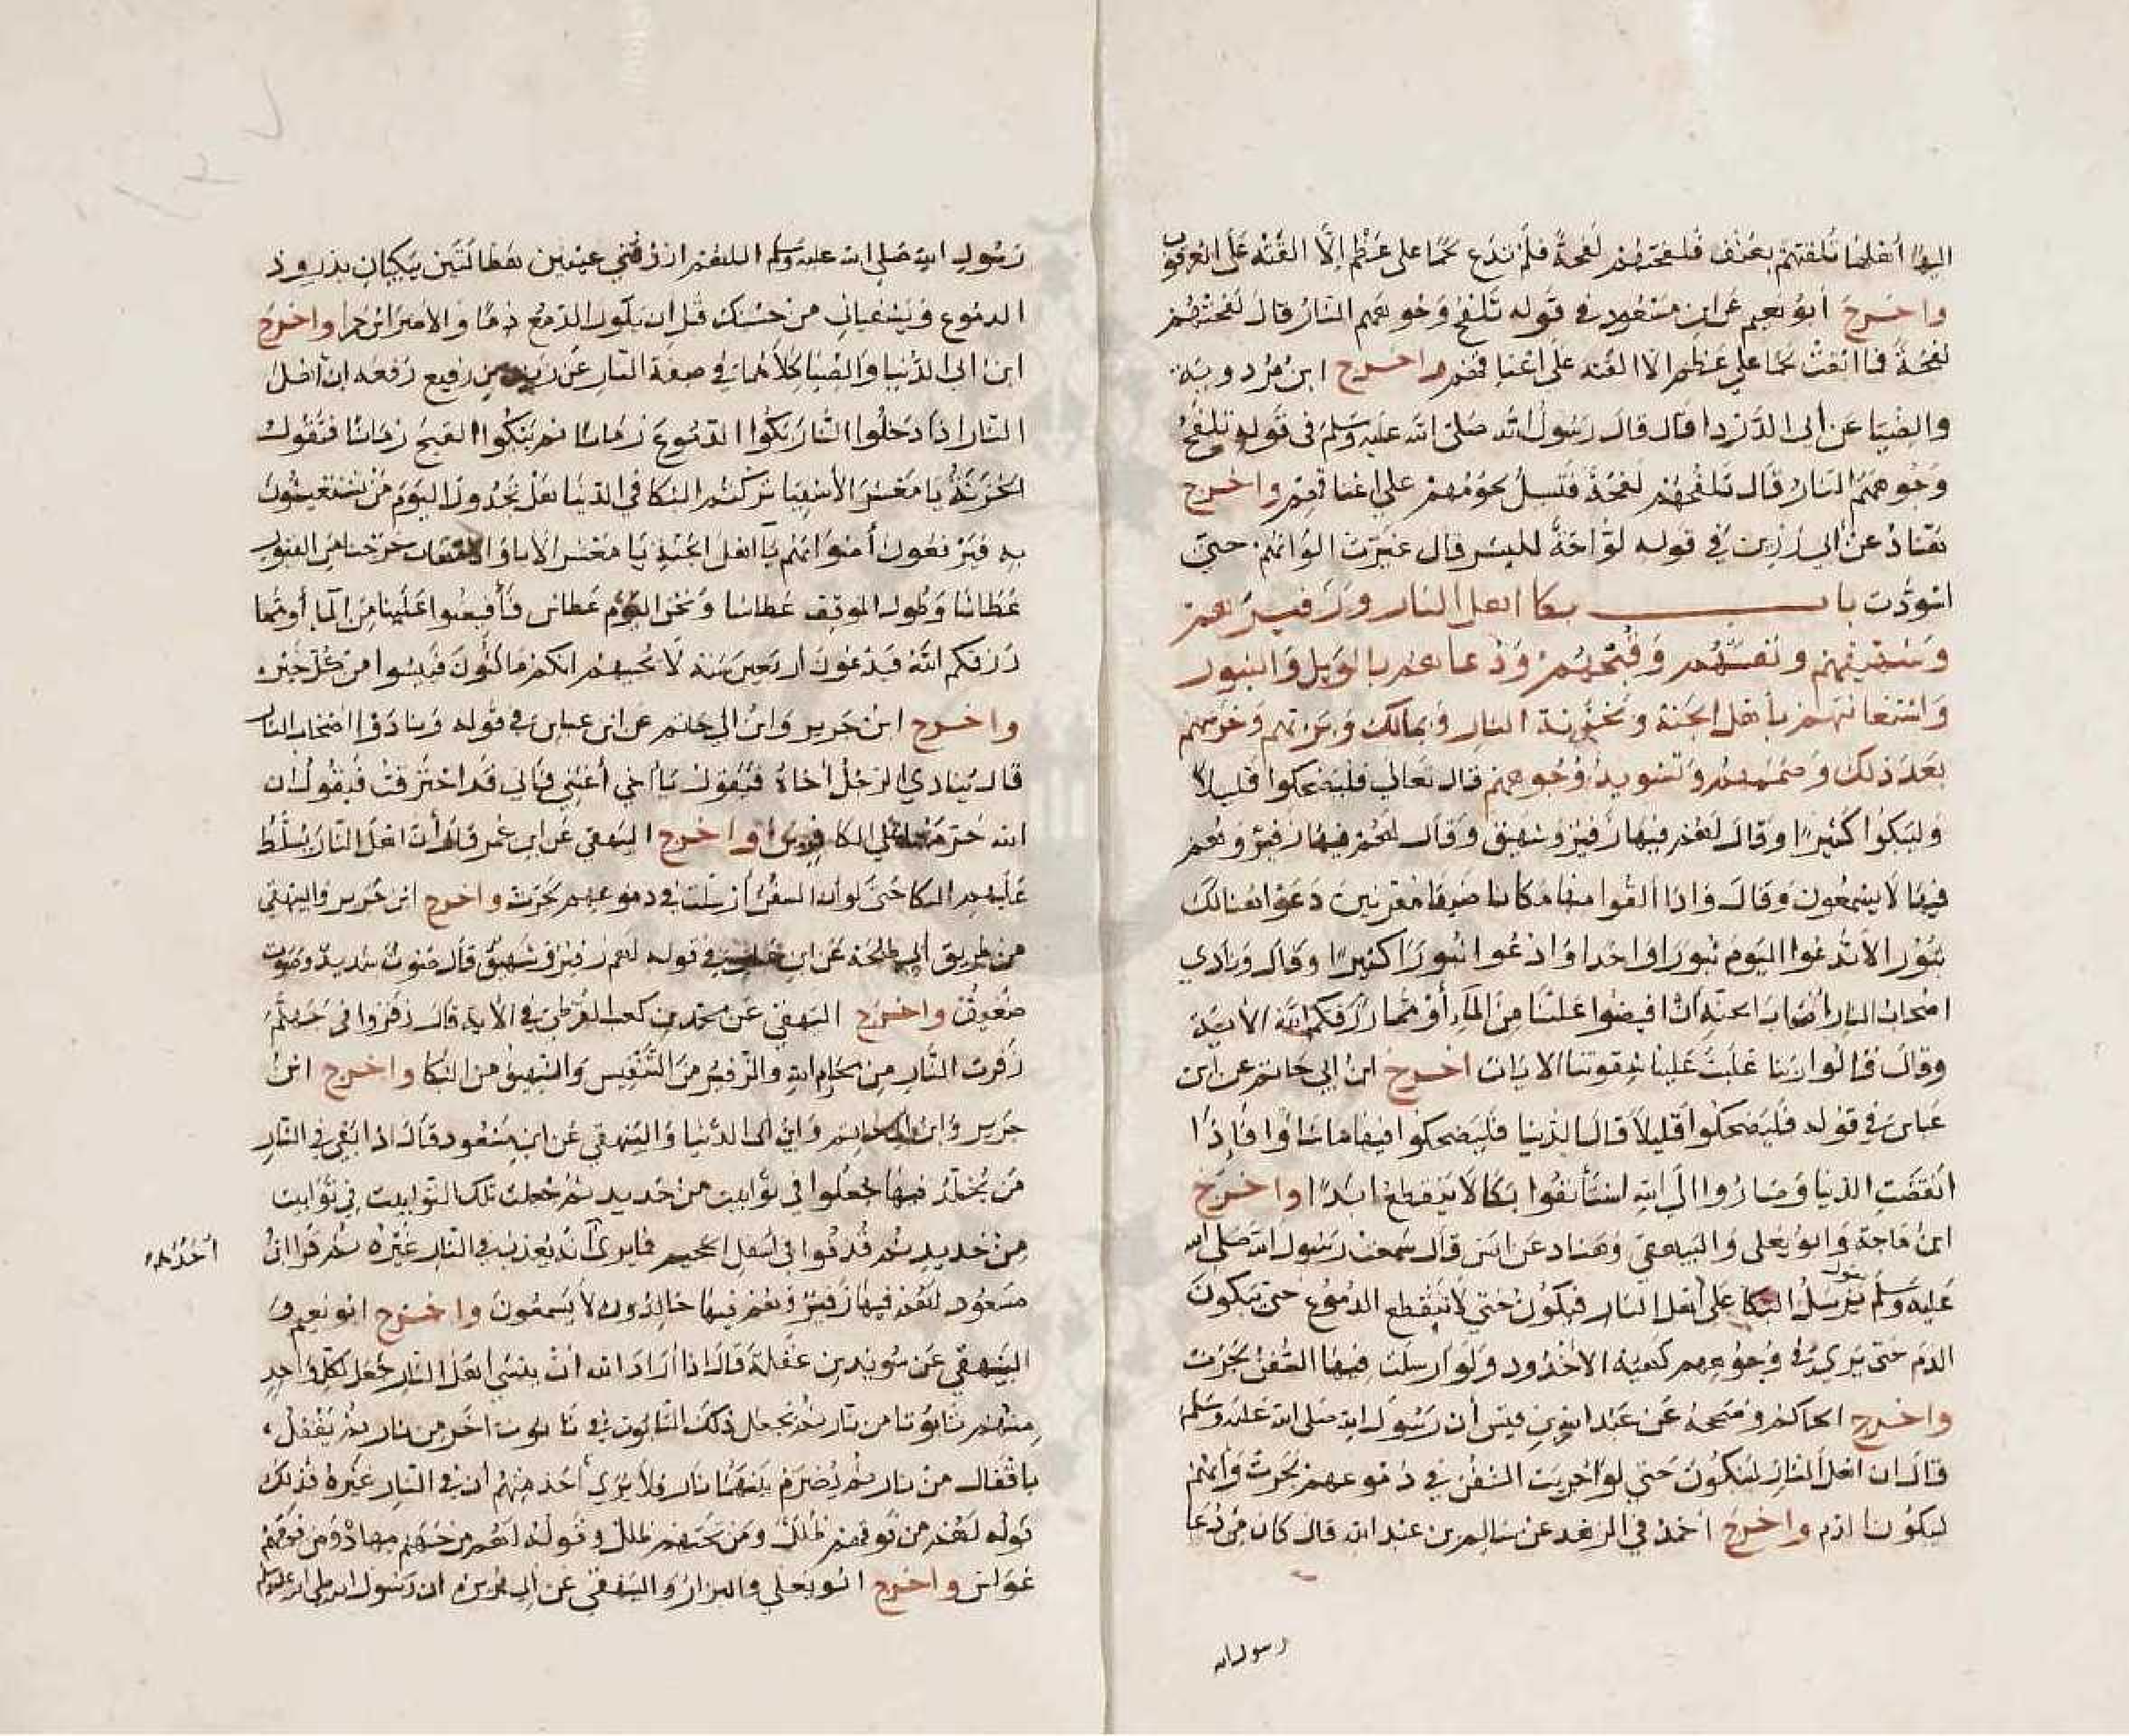 اليها أهلها تلفتهم بعنف فلفحتهم لفحة فلم تدع لحما على عظم إلا القته على العرقوب
واخرج أبو نعيم عن ابن مسعود في قوله تلفح وجوههم النار قال لفحتهم
لفحة فما ابقت لحما على عظم الا القته على اعقابهم واخرج ابن مردويه
والضيا عن أبى الدردا قال قال رسول الله صلى الله عليه وسلم فى قوله تلفح
وجوههم النار قال تلفحهم لفحة فتسيل لحومهم على اعقابهم واخرج
هناد عن أبي رزين في قوله لواحة للبشر قال غيرت الوانهم حتى
اسودت باب بكا اهل النار وزفيرهم
وشهيقهم و وقبحهم ودعاهم بالويل والثبور
واستغاثتهم بأهل الجنة وبخزنة النار وبمالك وبربهم وخرسهم
بعد ذلك وصممهم وتسويد وجوههم قال تعالى فليضحكوا قليلا
وليبكوا كثيرا وقال لهم فيها زفير وشهيق وقال لهم فيها زفير وهم
فيها لا يسمعون وقال واذا القوا منها مكانا ضيقا مقرنين دعوا هنالك
ثبورا لا تدعوا اليوم ثبورا واحدا وادعوا ثبورا كثيرا وقال ونادي
اصحاب النار أصحاب الجنة أن افيضوا علينا من الماء أو مما رزقكم الله الأية
وقال قالوا ربنا غلبت علينا شقوتنا الايات اخرج ابن ابي حاتم عن ابن
عباس في قوله فليضحكوا قليلا قال الدنيا فليضحكوا فيها ماشاؤا فإذا
انقضت الدنيا وصاروا الى الله استأنفوا بكا لا ينقطع ابدا واخرج
ابن ماجة وابو يعلى والبيهقى وهناد عن انس قال سمعت رسول الله صلى الله
عليه وسلم يقول يرسل البكا على أهل النار فيبكون حتى لا تنقطع الدموع حتى يبكون
الدم حتى يري في وجوههم كهيئة الاخدود ولو ارسلت فيها السفن لجرت
واخرج الحاكم وصححه عن عبد الله بن قيس أن رسول الله صلى الله عليه وسلم
قال ان اهل النار ليبكون حتى لو اجريت السفن في دموعهم لجرت وانهم
ليبكون الدم واخرج احمد في الزهد عن سالم بن عبد الله قال كان من دعا
رسول الله
رسول الله صلى الله عليه وسلم اللهم ارزقني عينين هطالتين يبكيان بذروف
الدموع ويشفيان من خشيتك قبل ان يكون الدمع دما والاضراس جمرا واخرج
ابن ابى الدنيا والضيا كلاهما في صفة النار عن زيد بن رفيع رفعه ان اهل
النار اذا دخلوا النار بكوا الدموع زمانا ثم بكوا القيح زمانا فتقول
الخزنة يا معشر الأشقيا تركتم البكا في الدنيا هل تجدون اليوم من تستغيثون
به فيرفعون أصواتهم يا اهل الجنة يا معشر الأبا والامهات خرجنا من القبور
عطاشا وطول الموقف عطاشا ونحن اليوم عطاش فأفيضوا علينا من الما أو مما
رزقكم الله فيدعون اربعين سنة لا يجيبهم انكم ماكثون فييئسوا من كل خير
واخرج ابن جرير وابن ابي حاتم عن ابن عباس في قوله ونادوا اصحاب النار
قال ينادي الرجل اخاه فيقول يا أخي أغثني فإني قد احترقت فيقول ان
الله حرمهما على الكافرين واخرج البيهقى عن ابن عمر قال أن اهل النار يسلط
عليهم البكا حتى لو أن السفن أرسلت في دموعهم لجرت واخرج ابن جرير والبيهقي
من طريق ابي طلحة عن ابن عباس في قوله لهم زفير وشهيق قال صوت شديد وصوت
ضعيف واخرج البيهقي عن محمد بن كعب القرظي في الأية قال زفروا فى جهنم
زفرت النار من والزفير من التنفس والشهيق من البكا واخرج ابن
جرير وابن ابى حاتم وابن ابى الدنيا والبيهقي عن ابن مسعود قال اذا بقي في النار
من يخلد فيها جعلوا في توابيت من حديد ثم جعلت تلك التوابيت في توابيت
من حديد ثم قذفوا في اسفل الجحيم فما يرى أنه يعذب في النار غيره ثم قرا ابن
أحدهم
مسعود لهم فيها زفير وهم فيها خالدون لا يسمعون واخرج ابو نعيم و
البيهقي عن سويد بن غفلة قال اذا أراد الله أن ينسى أهل النار جعل لكل واحد
منهم تابوتا من نار ثم يجعل ذلك التابوت في تابوت اخر من نار ثم يقفل
باقفال من نار ثم يضرم بينهما نار فلا يري أحد منهم أن في النار غيره فذلك
قوله لهم من فوقهم ظلل ومن تحتهم ظلل وقوله لهم من جهنم مهاد ومن فوقهم
غواش واخرج ابو يعلي والبزار والبيهقي عن ابي هريرة ان رسول الله صلى الله عليه وسلم